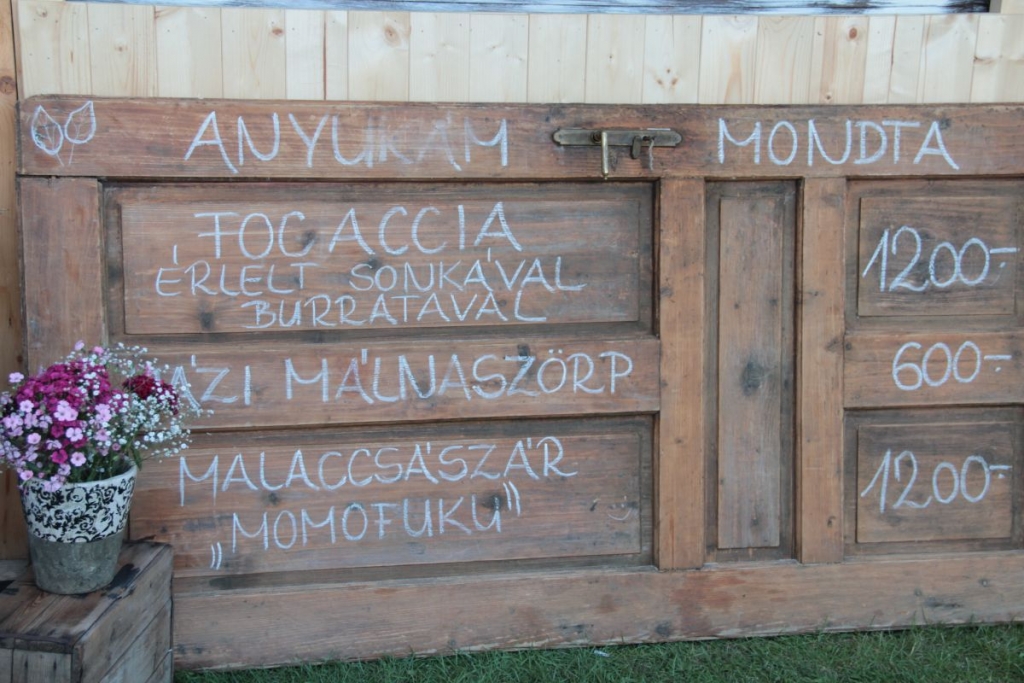 ANYUKÁM MONDTA
FOCACCIA
ÉRLELT SONKÁVAL
BURRATÁVAL
1200.-
ÁZI MÁLNASZÖRP 600.-
MALACCSÁSZÁR
„MOMOFUKU”
1200.-